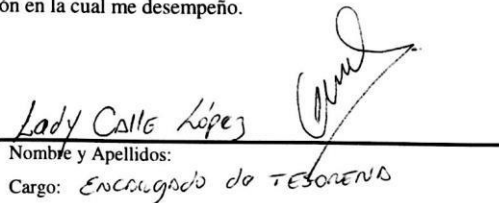 ón en la cual me desempeño.
Lady Calle López
Nombre y Apellidos:
Cargo: Encargado de TESORERIA